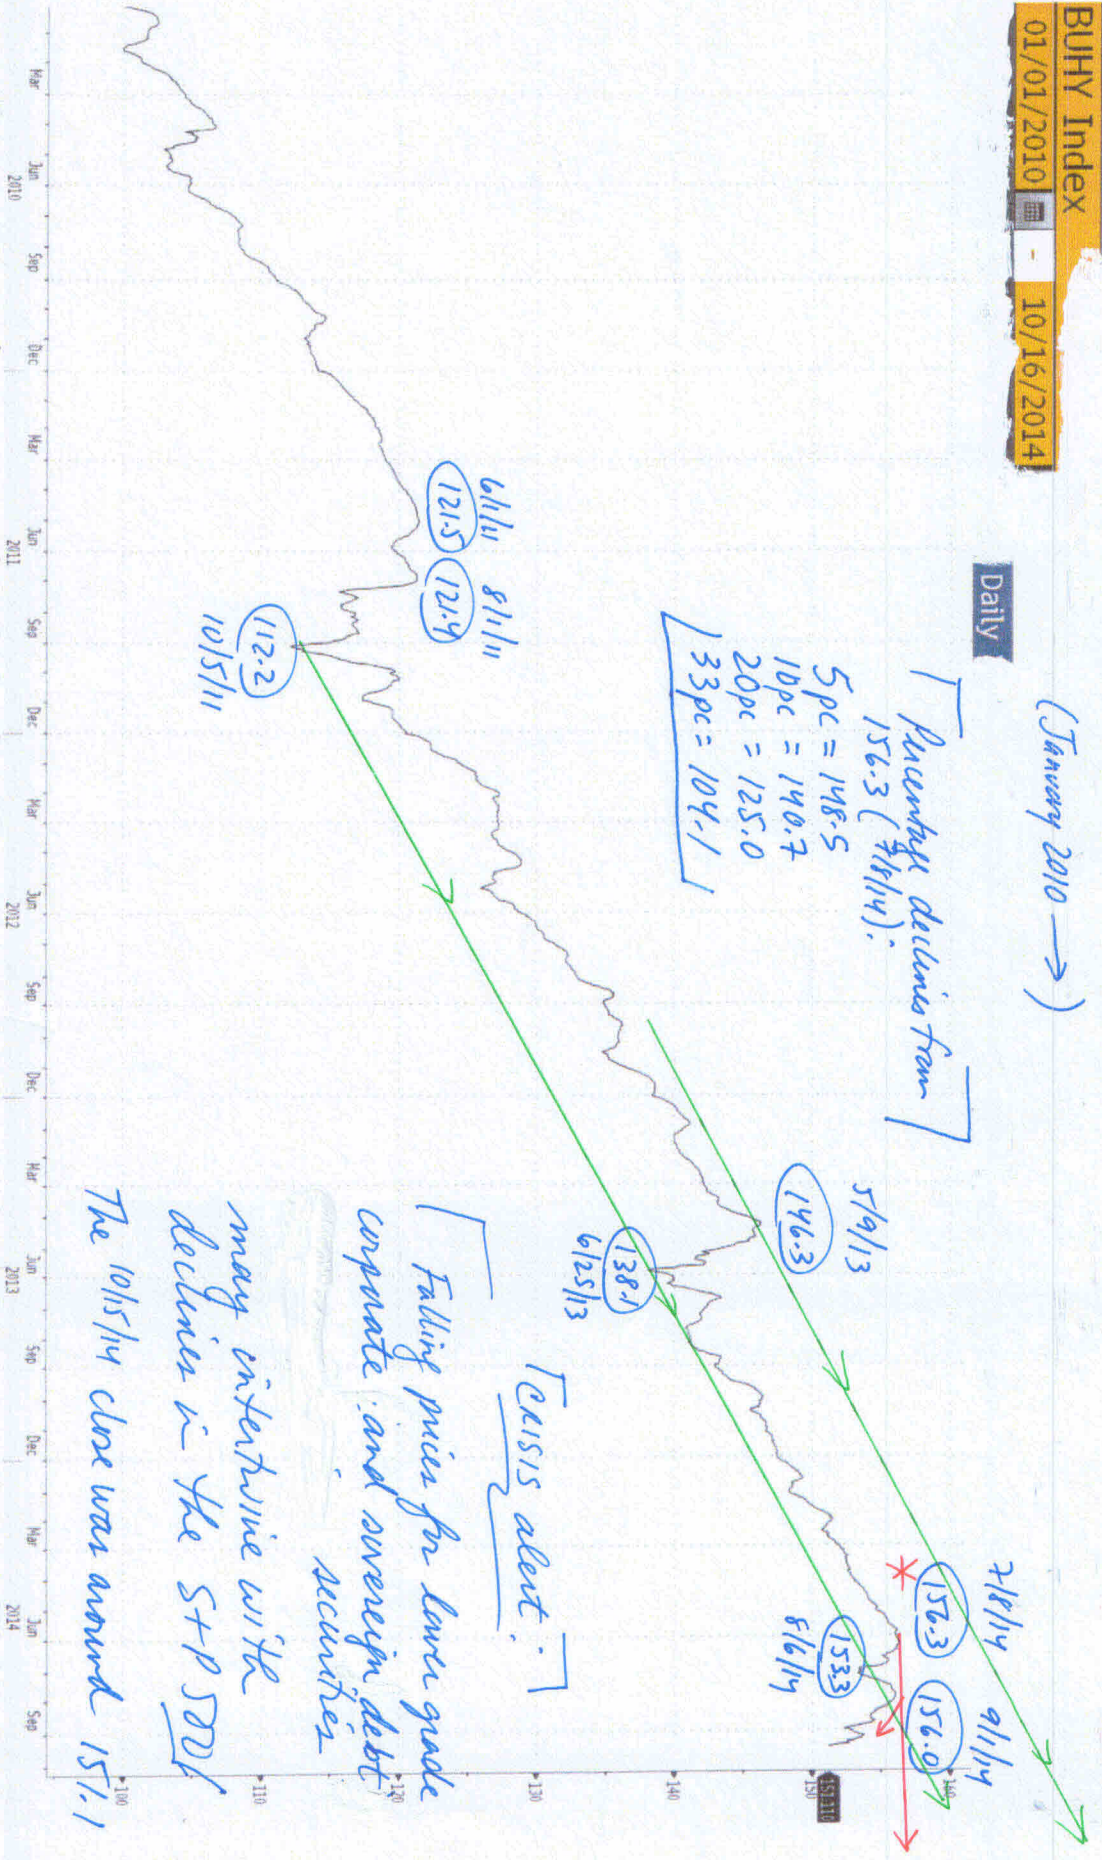 BUHY Index
01/01/2010 - 10/16/2014
(January 2010 →)
Daily
Percentage declines from
156.3 (7/8/14):
5pc = 148.5
10pc = 140.7
20pc = 125.0
33pc = 104.1
6/1/11
121.5
8/1/11
121.4
112.2
10/5/11
5/9/13
146.3
138.1
6/25/13
7/8/14
156.3
*
9/1/14
156.0
153.3
8/6/14
Crisis alert:
Falling prices for lower grade
corporate and sovereign debt
securities
may intertwine with
declines in the S+P 500
The 10/15/14 close was around 151.1
160
151.110
150
140
130
120
110
100
Mar Jun Sep Dec Mar Jun Sep Dec Mar Jun Sep Dec Mar Jun Sep Dec Mar Jun Sep
2010 2011 2012 2013 2014